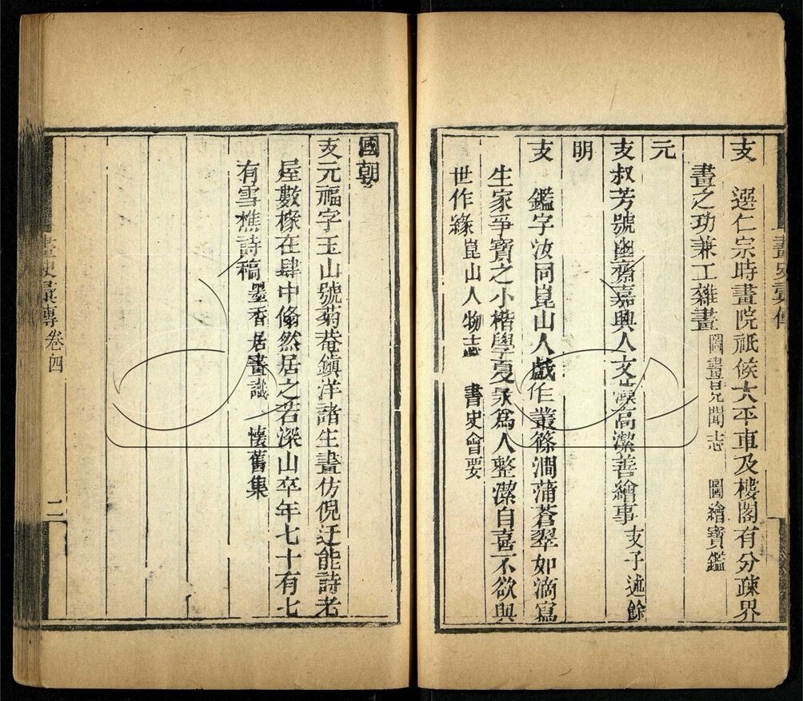 支 選仁宗時畫院祗候太平車及樓閣有分疎界
畫之功兼工雜畫 圖畫見聞志 圖繪寶鑑
元
支叔芳號幽齋嘉興人文藻高潔善繪事 支子遁餘
明
支 鑑字汝同崑山人戲作叢篠澗蒲蒼翠如滴寫
生家爭寶之小楷學夏昶為人整潔自喜不欲與
世作緣 崑山人物志 書史會要
國朝
支元福字玉山號菊菴鎮洋諸生畫仿倪迂能詩老
屋數椽在肆中翛然居之若深山卒年七十有七
有雪樵詩稿 墨香居畫識 懷舊集
畫史彙傳 卷四
二